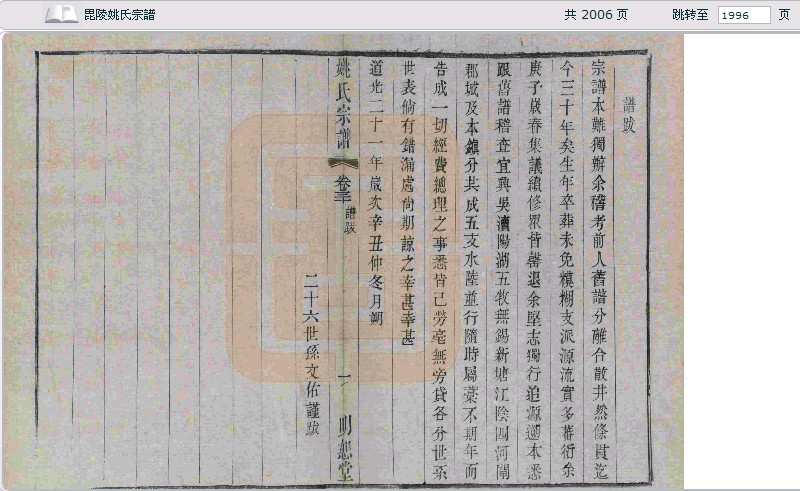 毘陵姚氏宗譜
共 2006 页
跳转至 1996 页
譜跋
宗譜本難獨辦余稽考前人舊譜分離合散井然條貫迄
今三十年矣生年卒葬未免糢糊支派源流實多蕃衍余
庚子歲春集議續修眾皆罄退余堅志獨行追源遡本悉
跟舊譜稽查宜興吳瀆陽湖五牧無錫新塘江陰四河閘
郡城及本鎮分共成五支水陸並行隨時屬葉不期年而
告成一切經費總理之事悉皆己勞毫無旁貸各分世系
世表倘有錯漏處尙期諒之幸甚幸甚
道光二十一年歲次辛丑仲冬月朔
姚氏宗譜
卷三
譜跋
一
則恕堂
二十六世孫文佑謹跋